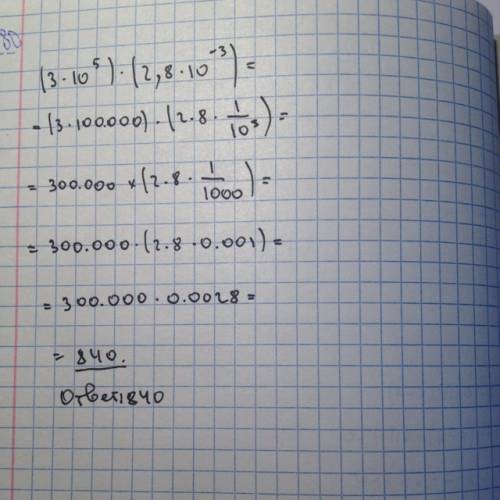 80
(3·10⁵)·(2,8·10⁻³)=
=(3·100.000)·(2.8·1/10³)=
=300.000×(2.8·1/1000)=
=300.000·(2.8·0.001)=
=300.000·0.0028=
=840.
Ответ:840